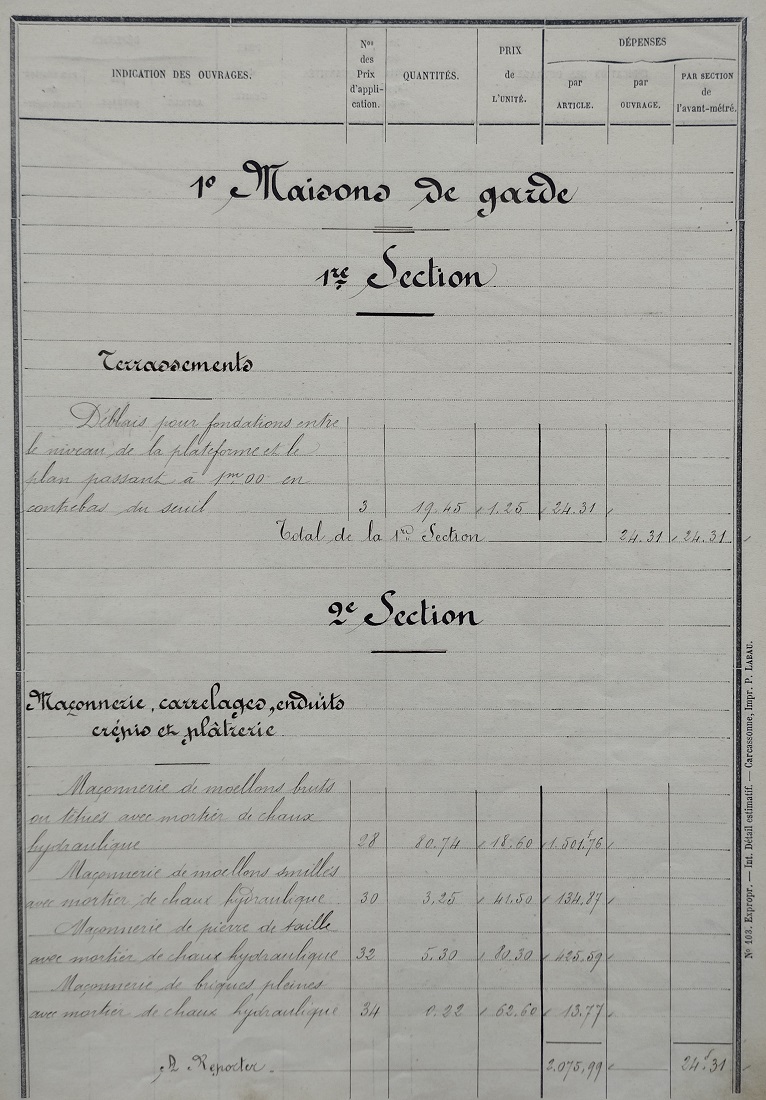 INDICATION DES OUVRAGES.
Nos des Prix d'appli-cation.
QUANTITÉS.
PRIX de L'UNITÉ.
DÉPENSES
par ARTICLE.
par OUVRAGE.
PAR SECTION de l'avant-métré.
1º Maisons de garde
1re Section
Terrassements
Déblais pour fondations entre
le niveau de la plateforme et le
plan passant à 1m00 en
contrebas du seuil 3 19.45 1.25 24.31
Total de la 1re Section 24.31 24.31
2e Section
Maçonnerie, carrelages, enduits
crépis et plâtrerie
Maçonnerie de moellons bruts
ou têtués avec mortier de chaux
hydraulique 28 80.74 18.60 1.501f76
Maçonnerie de moellons smillés
avec mortier de chaux hydraulique. 30 3.25 41.50 134.87
Maçonnerie de pierre de taille
avec mortier de chaux hydraulique 32 5.30 80.30 425.59
Maçonnerie de briques pleines
avec mortier de chaux hydraulique 34 0.22 62.60 13.77
A Reporter. 2.075,99 24f31
Nº 103. Expropr. — Int. Détail estimatif. — Carcassonne, Impr. P. LABAU.